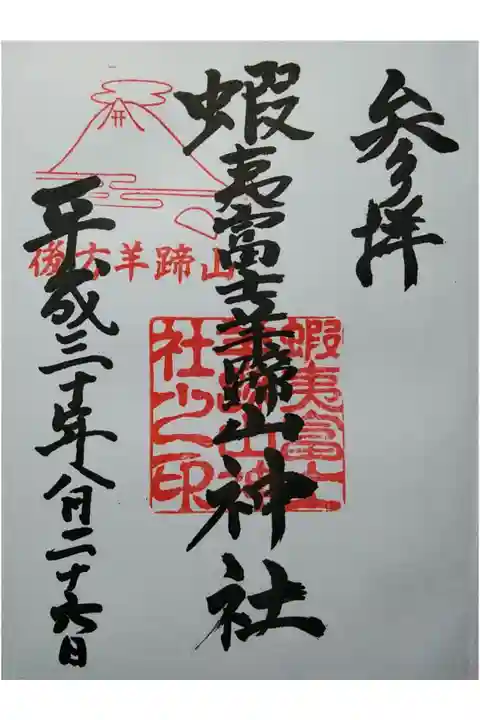 参拝
蝦夷富士羊蹄山神社
蝦夷富士
羊蹄山神
社之印
後方羊蹄山
平成三十年八月二十六日